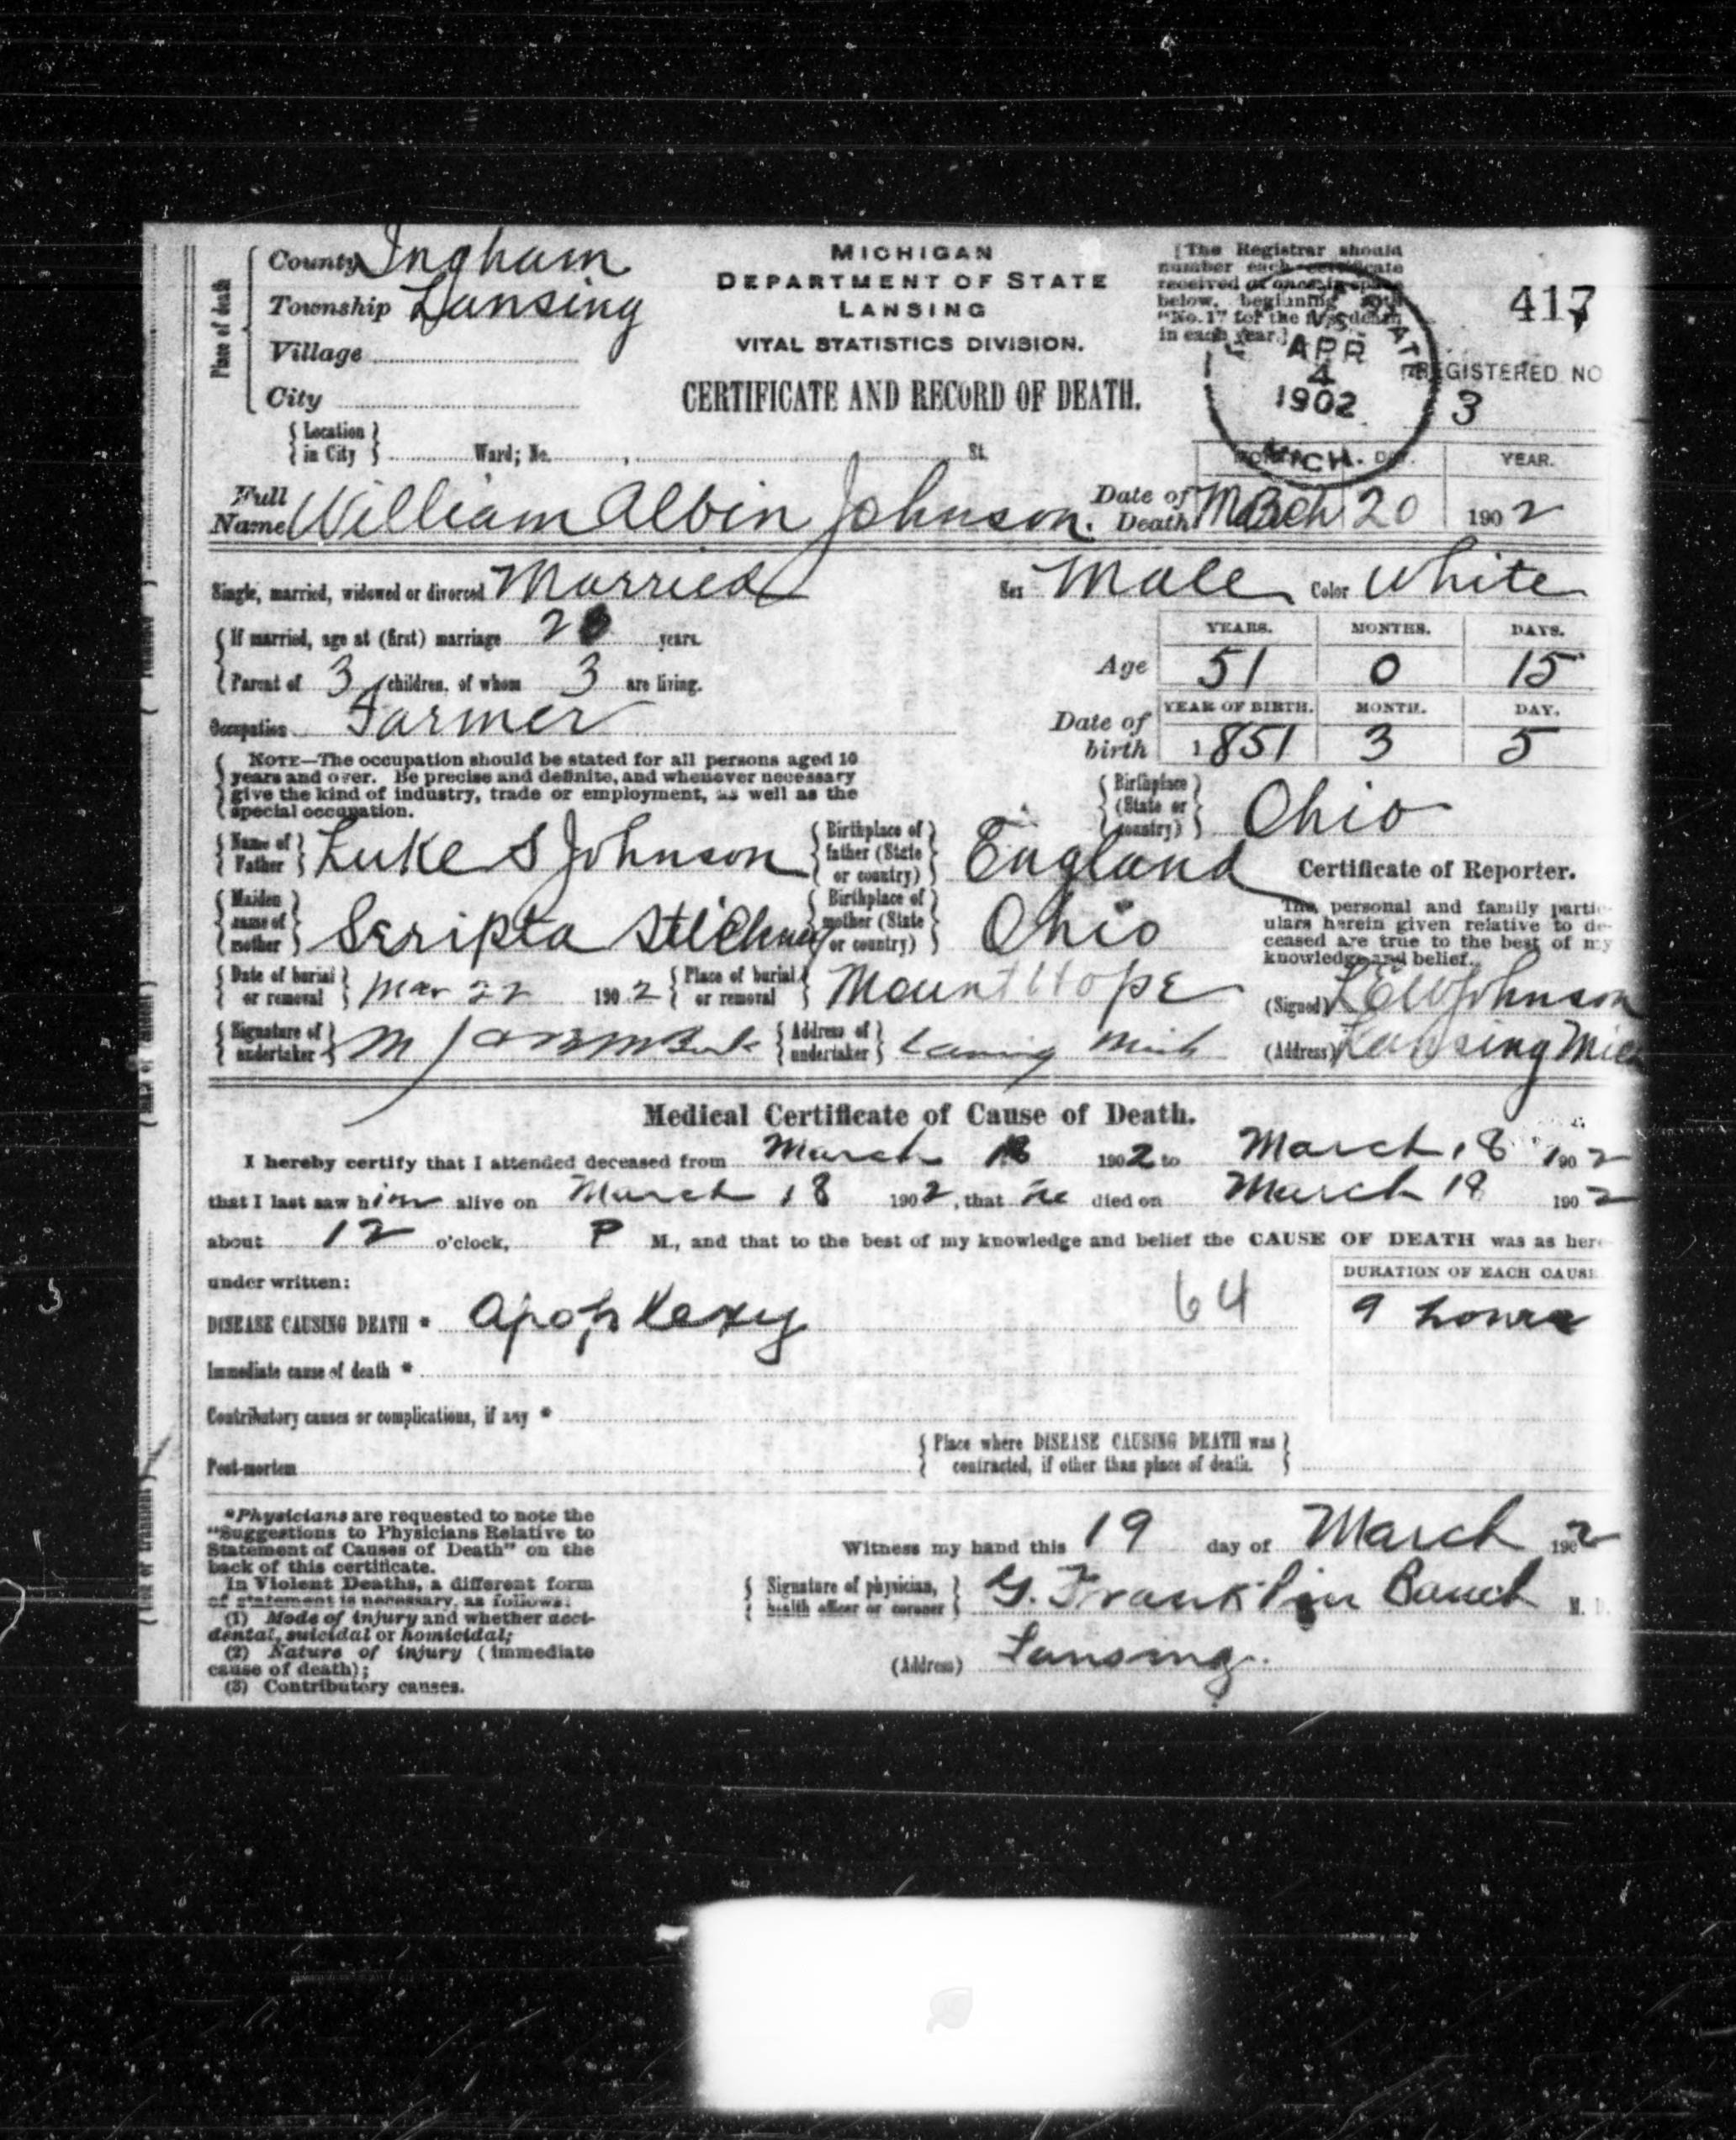 County Ingham
Township Lansing
Village
City
Place of death
MICHIGAN
DEPARTMENT OF STATE
LANSING
VITAL STATISTICS DIVISION.
CERTIFICATE AND RECORD OF DEATH.
[The Registrar should
number each certificate
received at once in space
below, beginning with
"No. 1" for the first death
in each year.]
APR
4
1902
MICH.
417
REGISTERED NO
3
Location in City Ward; No. St.
Full Name William Albin Johnson. Date of Death March 20 1902
MONTH. DAY. YEAR.
Single, married, widowed or divorced Married Sex Male Color White
If married, age at (first) marriage years.
Parent of 3 children, of whom 3 are living.
YEARS. MONTHS. DAYS.
Age 51 0 15
Occupation Farmer
YEAR OF BIRTH. MONTH. DAY.
Date of birth 1851 3 5
NOTE—The occupation should be stated for all persons aged 10
years and over. Be precise and definite, and whenever necessary
give the kind of industry, trade or employment, as well as the
special occupation.
Birthplace (State or country) Ohio
Name of Father Luke S Johnson Birthplace of father (State or country) England
Maiden name of mother Stickney Birthplace of mother (State or country) Ohio
Certificate of Reporter.
The personal and family partic-
ulars herein given relative to de-
ceased are true to the best of my
knowledge and belief.
Date of burial or removal Mar 22 1902 Place of burial or removal Mount Hope
(Signed) Johnson
Signature of undertaker Address of undertaker Lansing Mich
(Address) Lansing Mich
Medical Certificate of Cause of Death.
I hereby certify that I attended deceased from March 1902 to March 18 1902
that I last saw him alive on March 18 1902, that he died on March 1902
about 12 o'clock, P M., and that to the best of my knowledge and belief the CAUSE OF DEATH was as here
under written:
DURATION OF EACH CAUSE
DISEASE CAUSING DEATH * Apoplexy 64 9 hours
Immediate cause of death *
Contributory causes or complications, if any *
Post-mortem
Place where DISEASE CAUSING DEATH was
contracted, if other than place of death.
*Physicians are requested to note the
"Suggestions to Physicians Relative to
Statement of Causes of Death" on the
back of this certificate.
In Violent Deaths, a different form
of statement is necessary, as follows:
(1) Mode of injury and whether acci-
dental, suicidal or homicidal;
(2) Nature of injury (immediate
cause of death);
(3) Contributory causes.
Witness my hand this 19 day of March 1902
Signature of physician, health officer or coroner G. Franklin Bauch M.
(Address) Lansing.